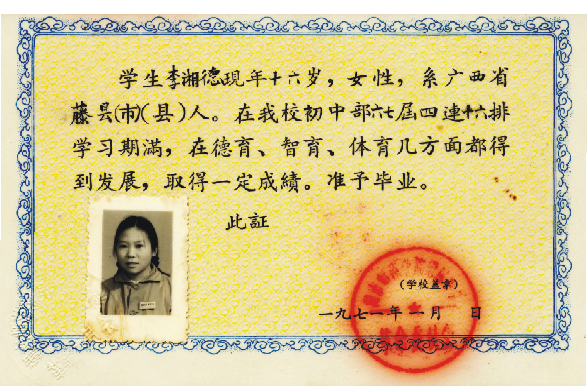 学生李湘德現年十六岁，女性，系广西省
藤县(市)(县)人。在我校初中部六七届四連十六排
学习期滿，在德育、智育、体育几方面都得
到发展，取得一定成績。准予毕业。
此証
(学校盖章)
一九七一年一月　日